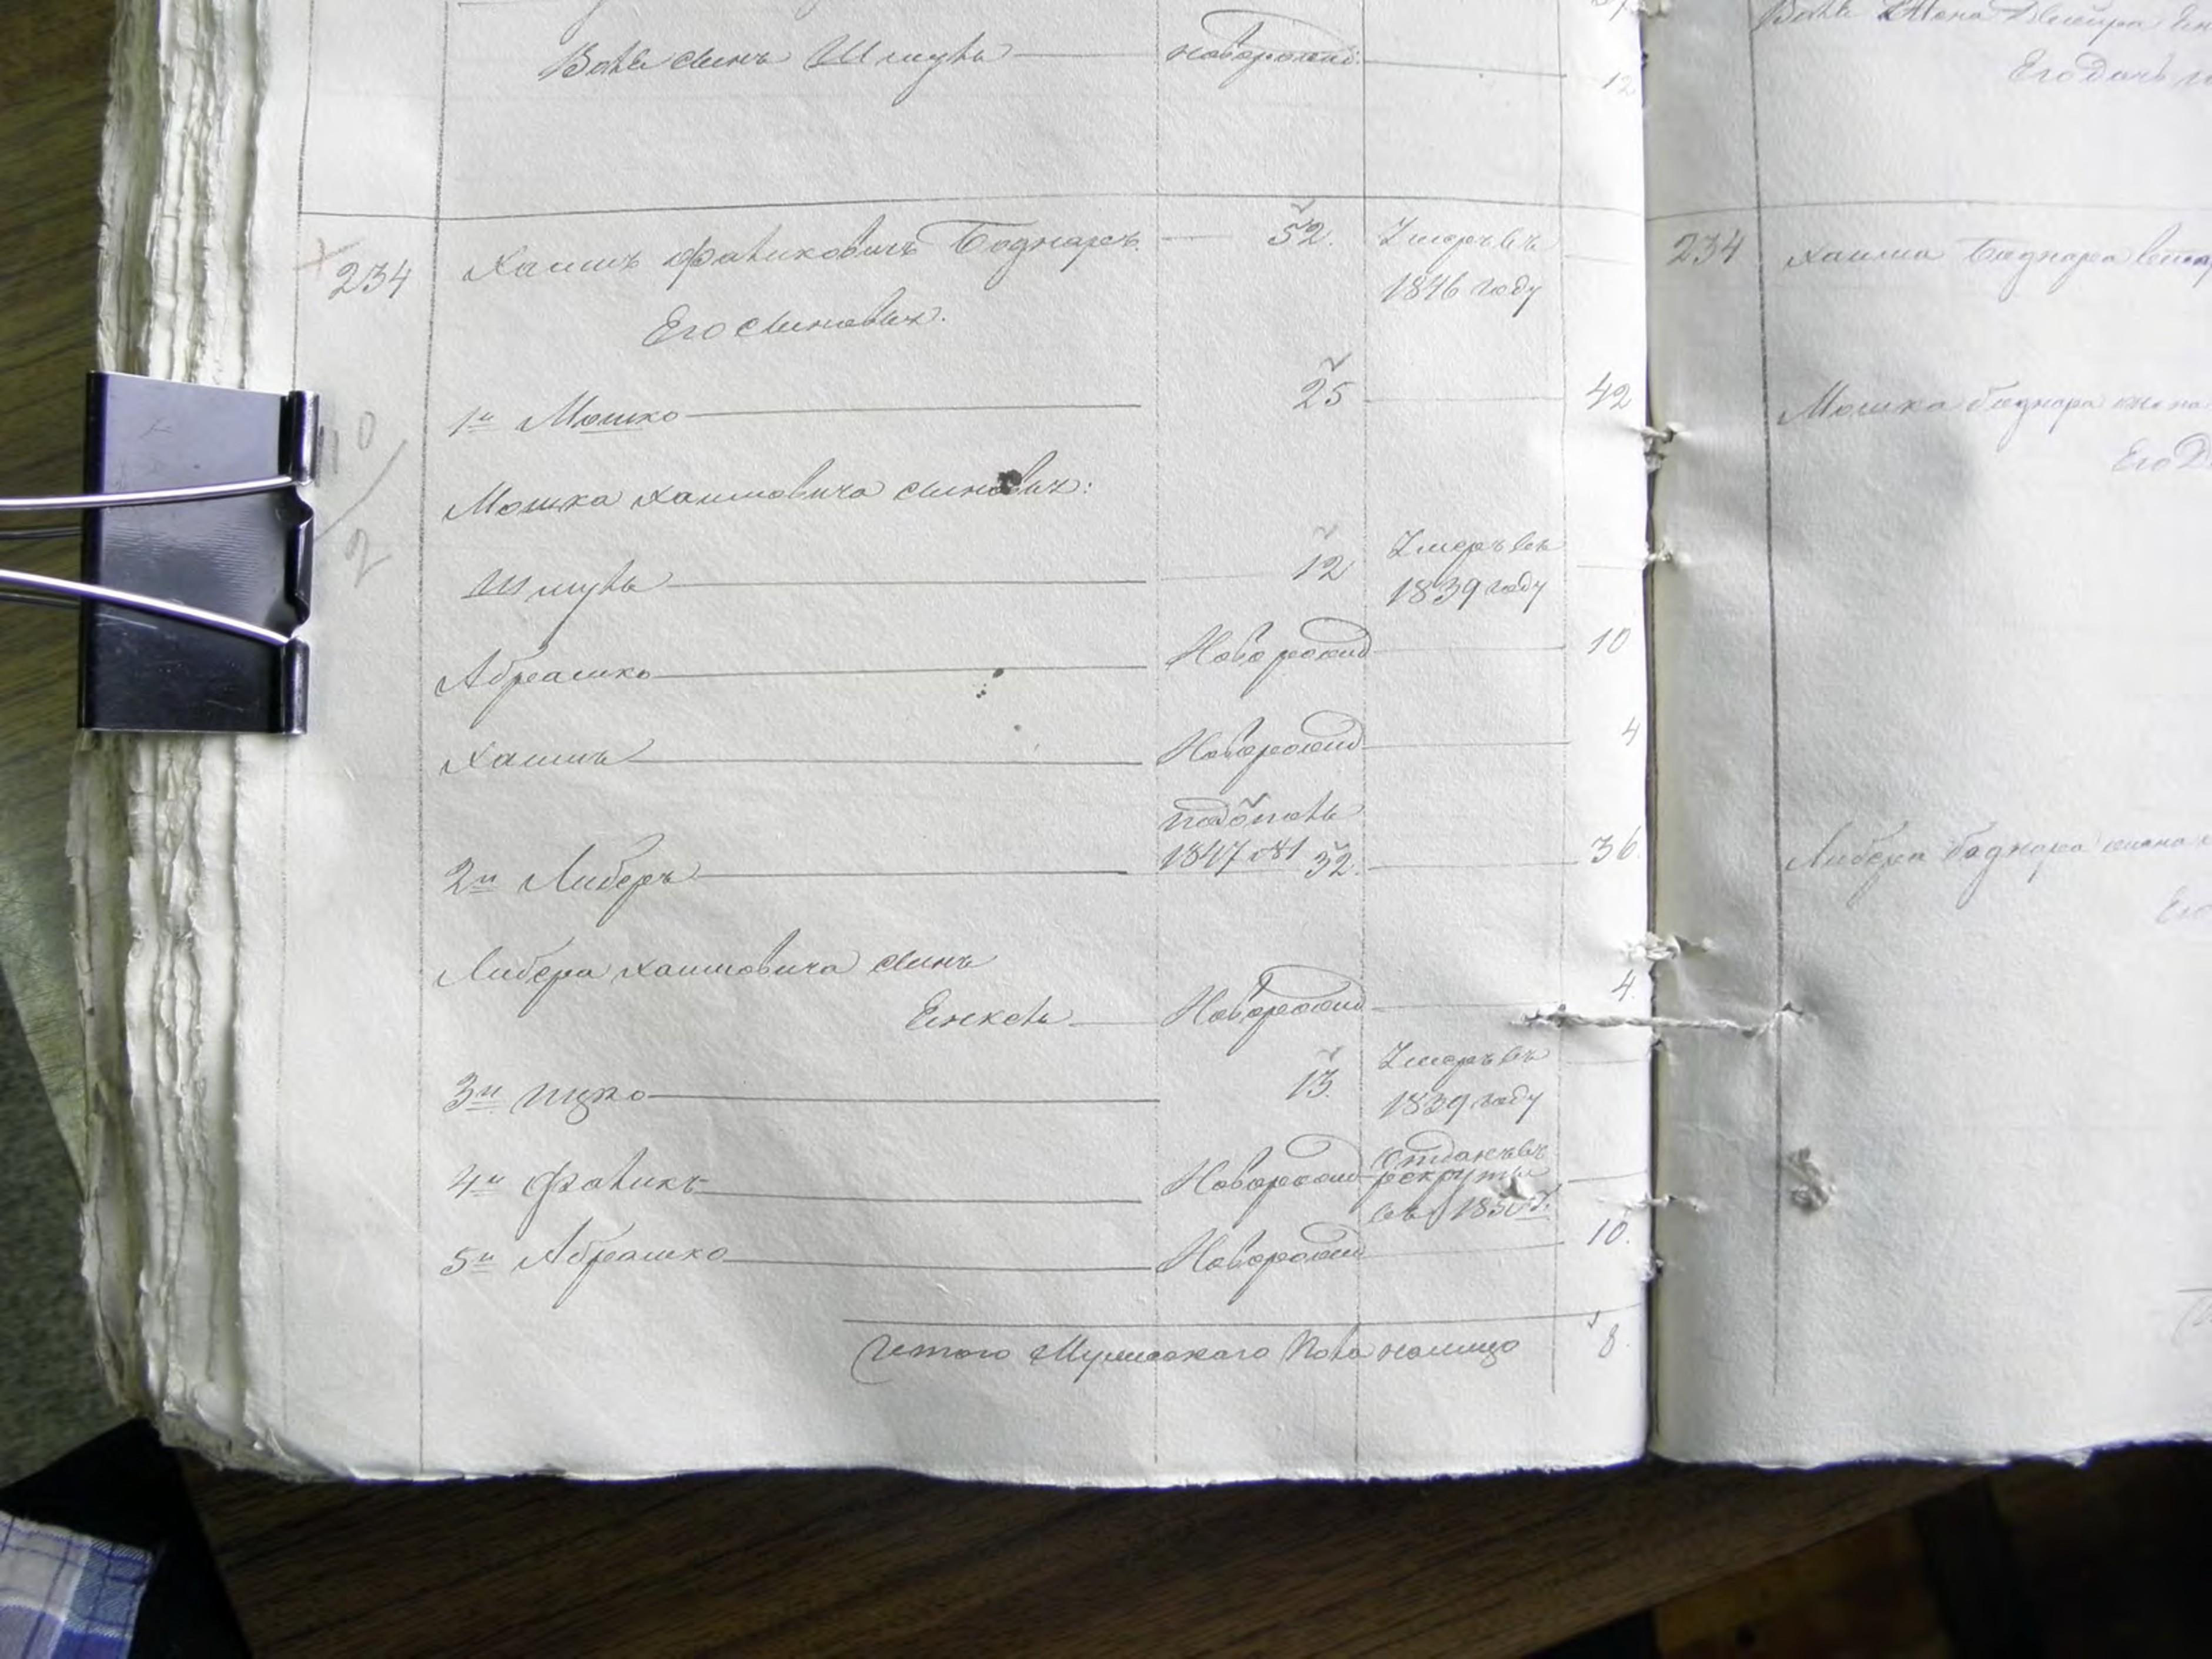 Вольк сынъ Шмуль новорожд: 12
234 Хаимъ Фаликовичъ Боднаръ 52. Умеръ въ
1846 году
Его сыновья.
1й Мошко 25 42
Мошка Хаимовича сыновья:
Шмуль 12 Умеръ въ
1839 году
Абрашко Новорожд 10
Хаимъ Новорожд 4
1847 32. 36.
2й Либеръ
Либера Хаимовича сынъ
Новорожд 4.
3й Ицко 13. Умеръ въ
1839 году
4й Фаликъ Новорожд отданъ въ
рекруты
въ 1850 г.
5й Абрашко Новорожд 10.
Итого Мужескаго пола на лицо 8.
10
2
234 Хаима Боднара
Мошка Боднара жена
Его
Либера Боднара жена